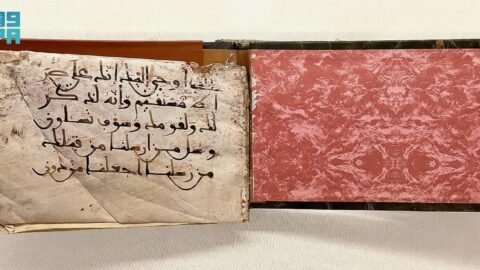 اوحى اليك انك على صر
اط مستقيم وانه لذكر
لك ولقومك وسوف تسئلون
وسل من ارسلنا من قبلك
من رسلنا اجعلنا من دون